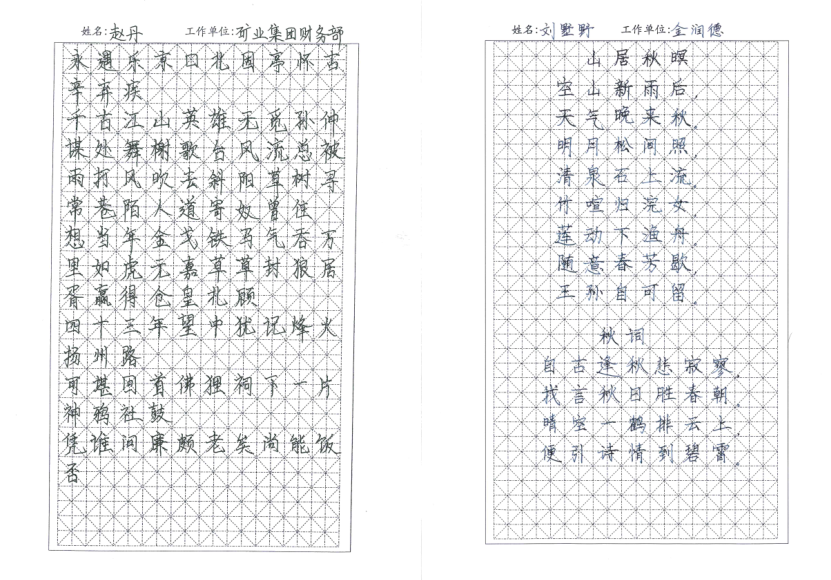 姓名:赵丹 工作单位:矿业集团财务部
永遇乐京口北固亭怀古
辛弃疾
千古江山英雄无觅孙仲
谋处舞榭歌台风流总被
雨打风吹去斜阳草树寻
常巷陌人道寄奴曾住
想当年金戈铁马气吞万
里如虎元嘉草草封狼居
胥赢得仓皇北顾
四十三年望中犹记烽火
扬州路
可堪回首佛狸祠下一片
神鸦社鼓
凭谁问廉颇老矣尚能饭
否
姓名:刘墅野 工作单位:金润德
山居秋暝
空山新雨后,
天气晚来秋。
明月松间照,
清泉石上流。
竹喧归浣女,
莲动下渔舟。
随意春芳歇,
王孙自可留。
秋词
自古逢秋悲寂寥,
我言秋日胜春朝。
晴空一鹤排云上,
便引诗情到碧霄。